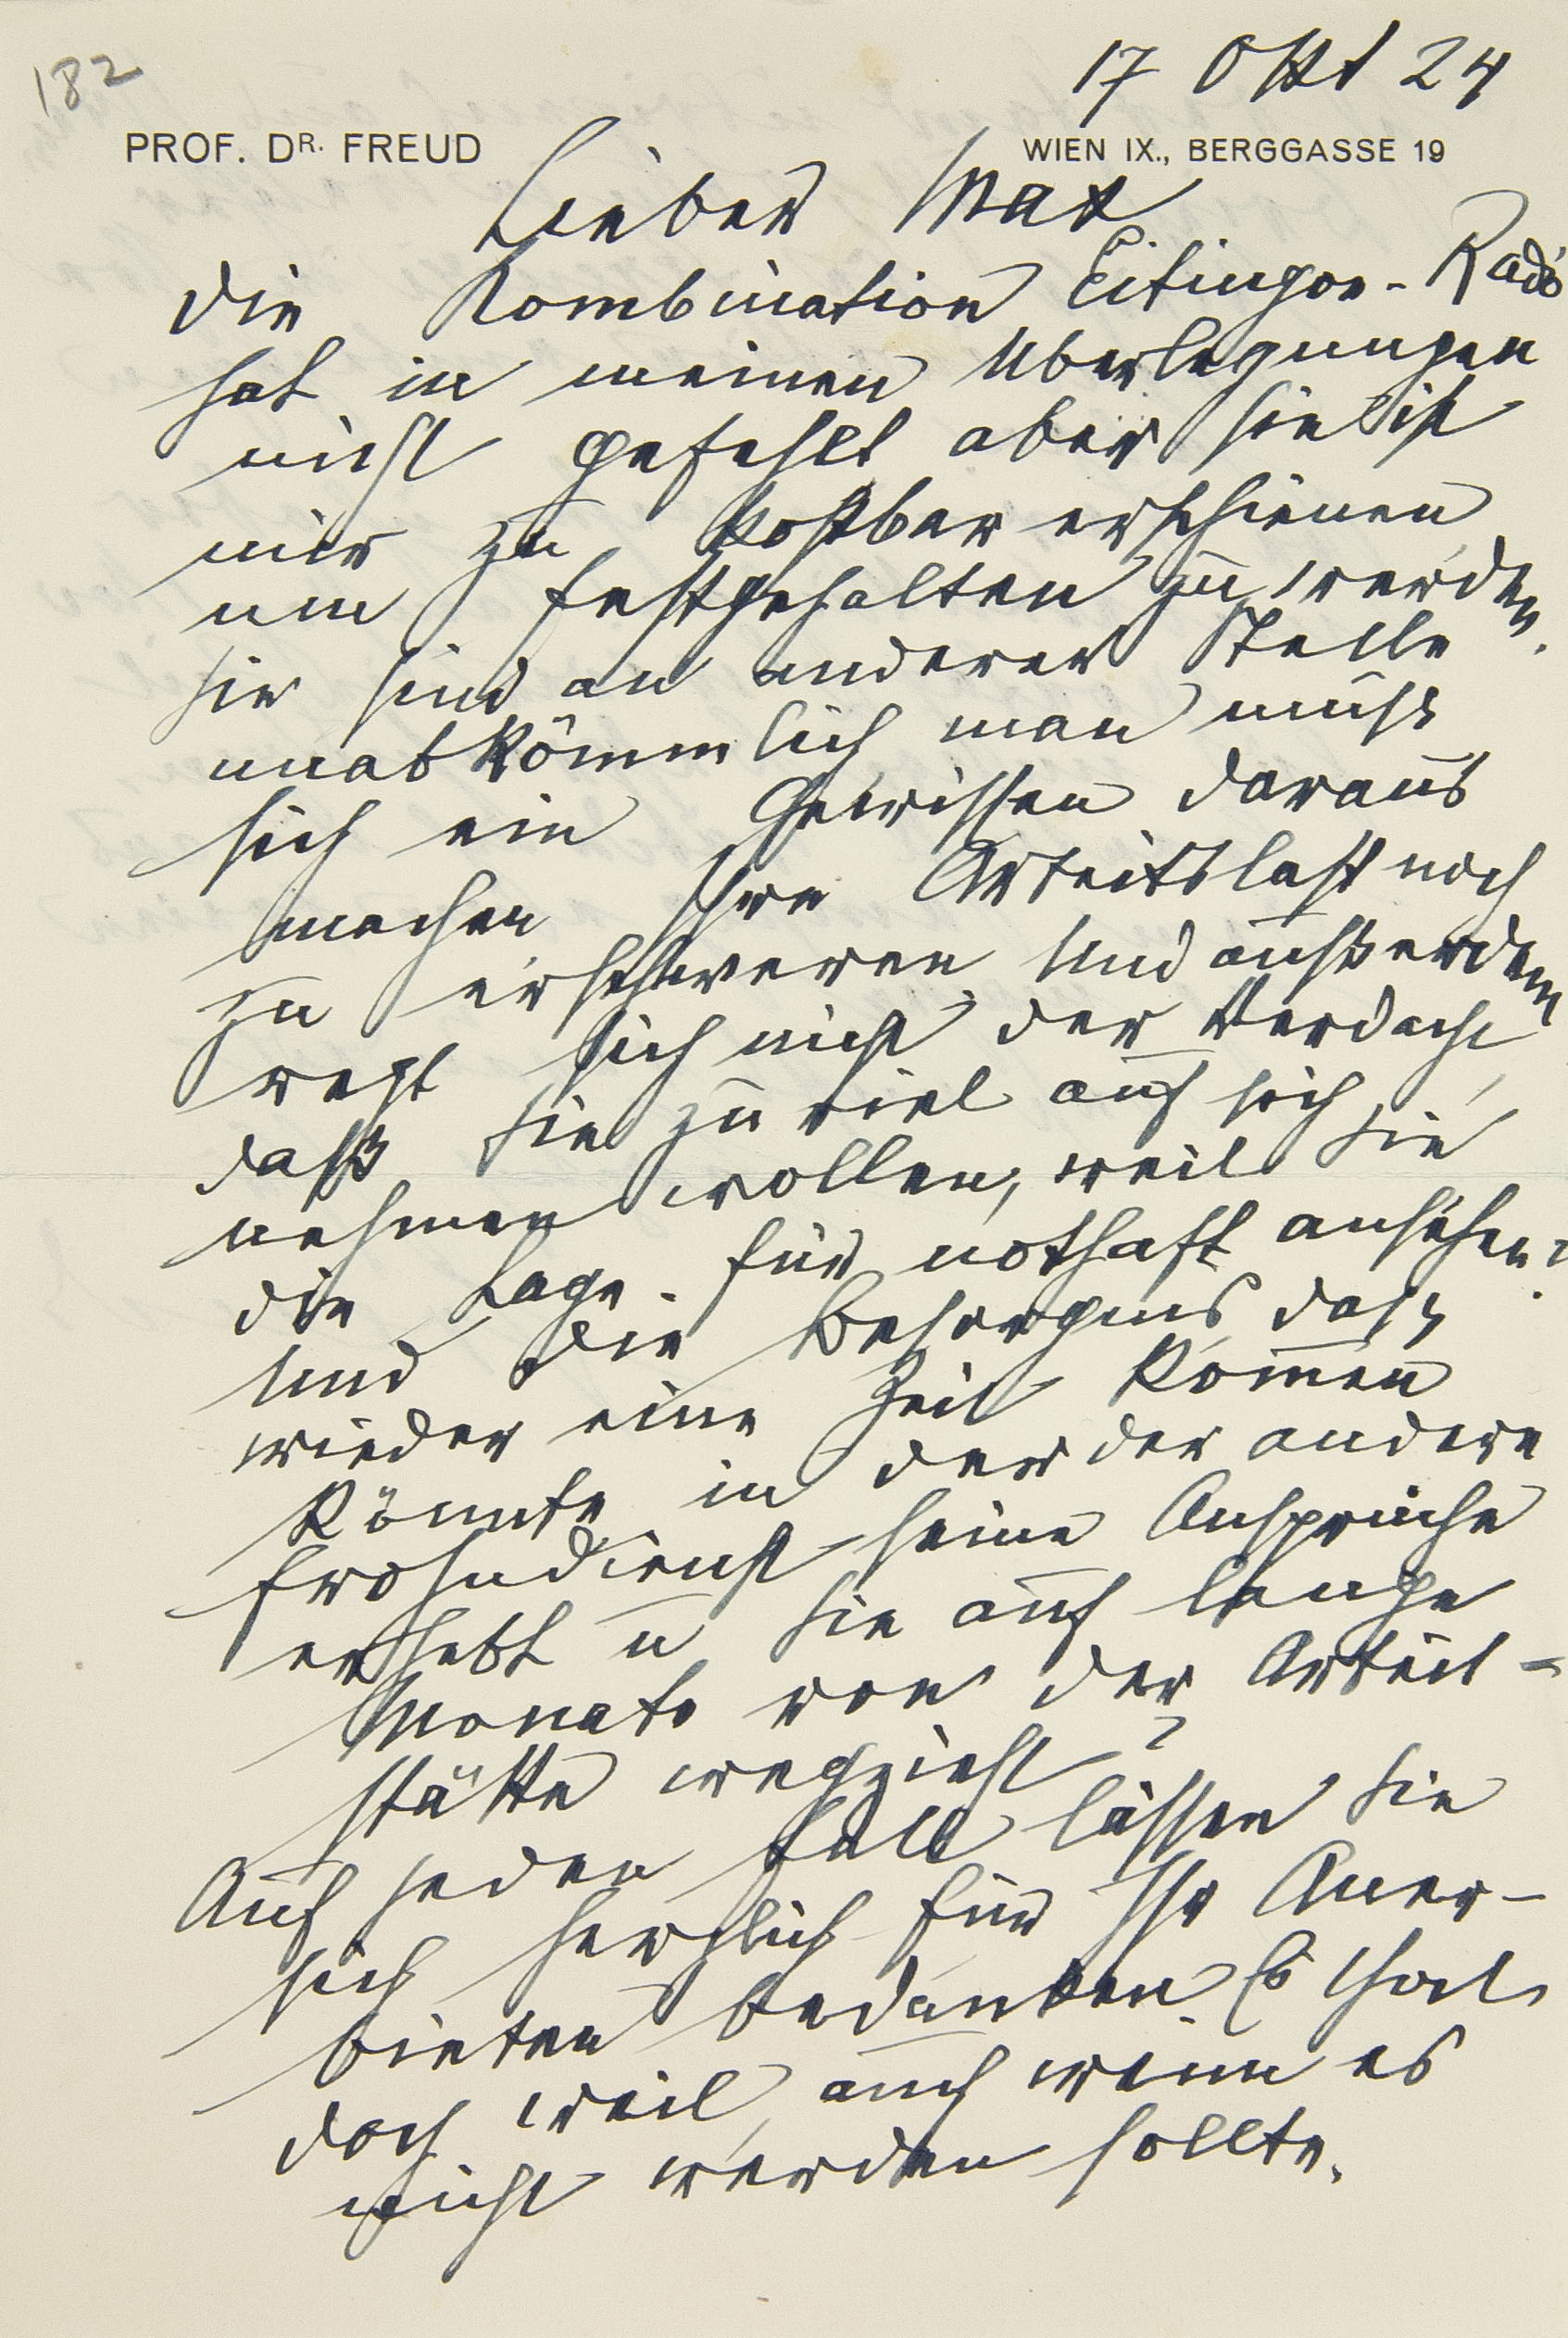 182
17 Okt 24
PROF. DR. FREUD
WIEN IX., BERGGASSE 19
Lieber Max
Die Kombination Eitingon-Radó
hat in meinen Überlegungen
nicht gefehlt aber sie ist
mir zu kostbar erschienen
um festgehalten zu werden.
Sie sind an anderer Stelle
unabkömmlich man muß
sich ein Gewissen daraus
machen Ihre Arbeitslast noch
zu erschweren Und außerdem
regt sich nicht der Verdacht
daß Sie zu viel auf sich
nehmen wollen, weil Sie
die Lage für nothaft ansehen?
Und die Besorgnis daß
wieder eine Zeit kom̅en
könnte in der der andere
Frohndienst seine Ansprüche
erhebt u Sie auf lange
Monate von der Arbeit=
stätte wegzieht?
Auf jeden Fall lassen Sie
sich herzlich für Ihr Aner-
bieten bedanken Es thut
doch weil, auch wenn es
nicht werden sollte.